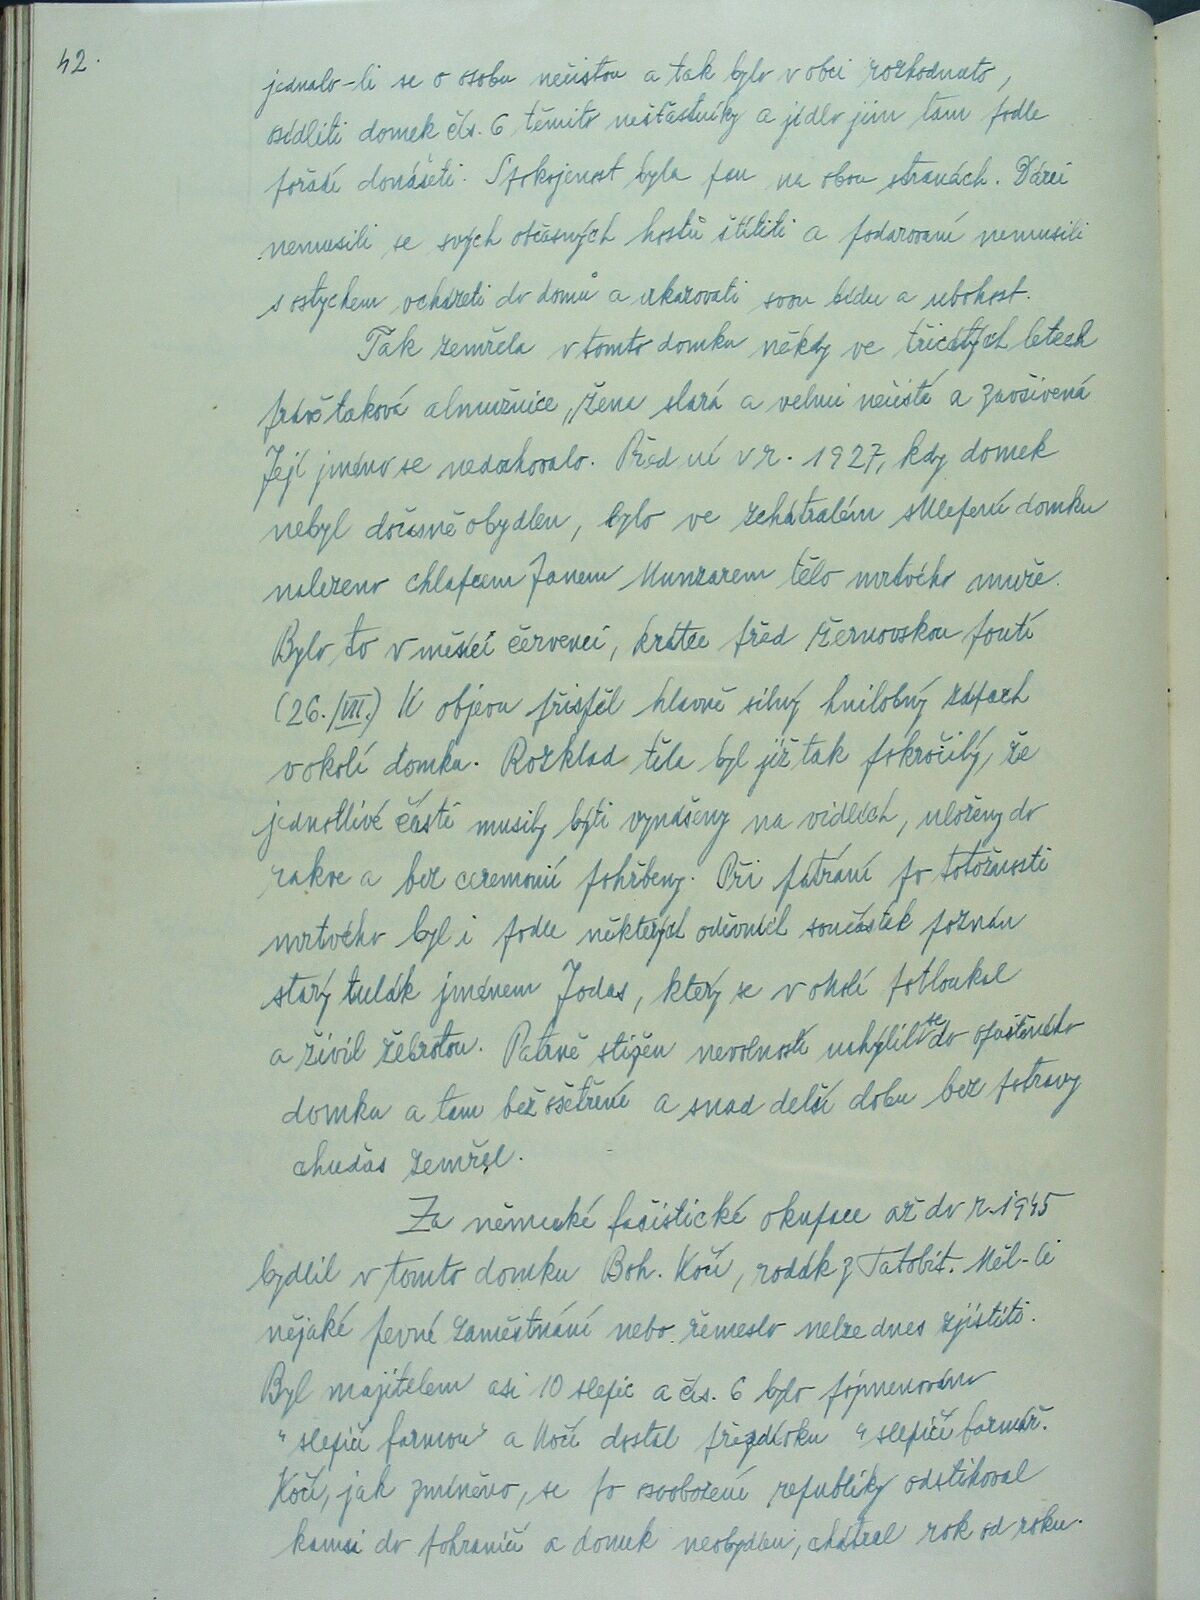 42.
jednalo-li se o osobu nečistou a tak bylo v obci rozhodnuto,
osídliti domek čís. 6 těmito nešťastníky a jídlo jim tam podle
pořadí donášeti. Spokojenost byla pak na obou stranách. Dárci
nemusili se svých občasných hostů štítiti a podarovaní nemusili
s ostychem vcházeti do domů a ukazovati svou bídu a ubohost.
Tak zemřela v tomto domku někdy ve třicátých letech
právě taková almužnice, žena stará a velmi nečistá a zavšivená
Její jméno se nedochovalo. Před ní v r. 1927, kdy domek
nebyl dočasně obydlen, bylo ve zchátralém sklepení domku
nalezeno chlapcem Janem Munzarem tělo mrtvého muže.
Bylo to v měsíci červenci, krátce před žernovskou poutí
(26./VII.) K objevu přispěl hlavně silný hnilobný zápach
v okolí domku. Rozklad těla byl již tak pokročilý, že
jednotlivé části musily býti vynášeny na vidlích, uloženy do
rakve a bez ceremonií pohřbeny. Při pátrání po totožnosti
mrtvého byl i podle některých oděvních součástek poznán
starý tulák jménem Jodas, který se v okolí potloukal
a živil žebrotou. Patrně stižen nevolností uchýlil se do opuštěného
domku a tam bez ošetření a snad delší dobu bez potravy
chudás zemřel.
Za německé fašistické okupace až do r. 1945
bydlil v tomto domku Boh. Kočí, rodák z Tatobit. Měl-li
nějaké pevné zaměstnání nebo řemeslo nelze dnes zjistiti.
Byl majitelem asi 10 slepic a čís. 6 bylo pojmenováno
"slepičí farmou" a Kočí dostal přezdívku "slepičí farmář.
Kočí, jak zmíněno, se po osvobození republiky odstěhoval
kamsi do pohraničí a domek neobydlen, chátral rok od roku.